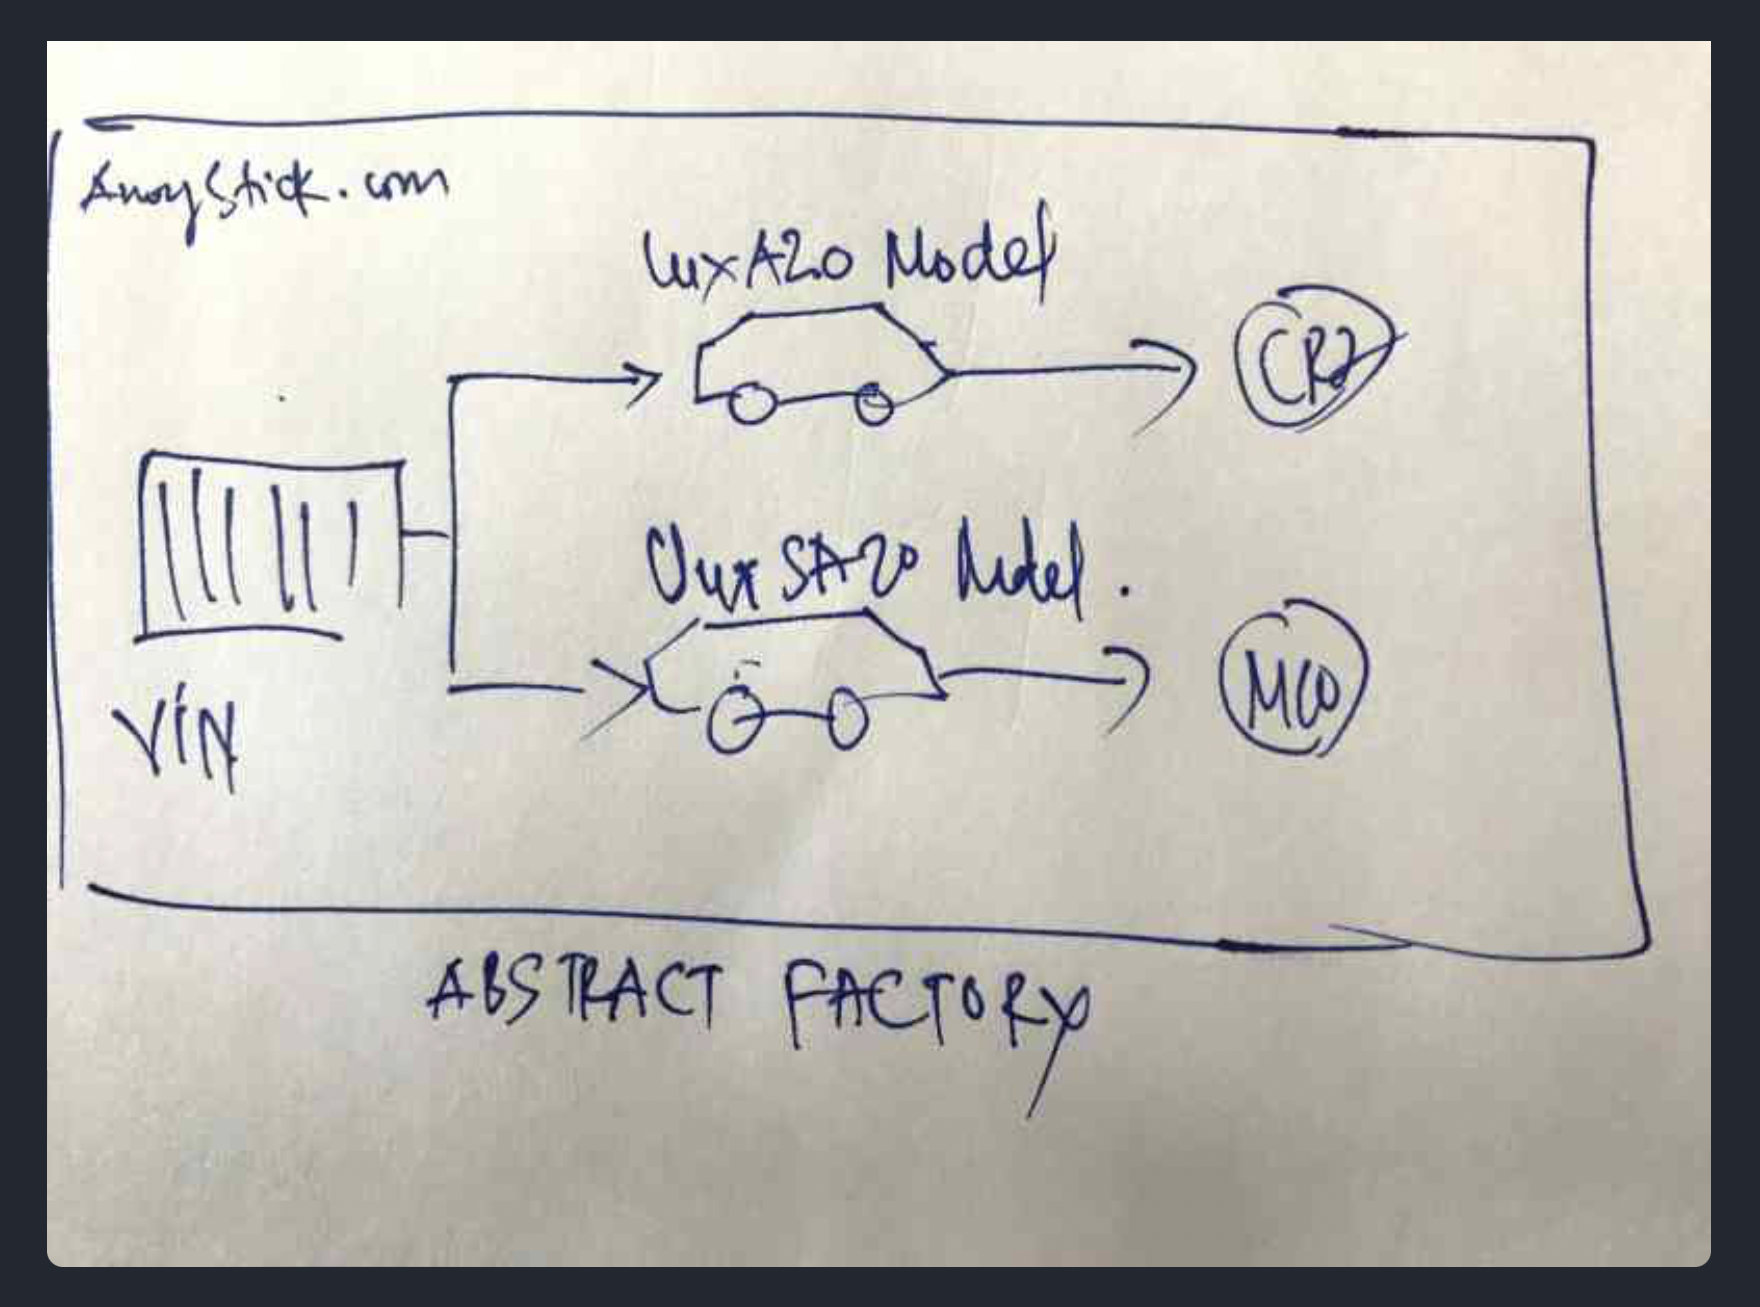 AnoyStick.com
LuxA2.0 Model
CR7
Lux SA20 Model.
M10
VIN
ABSTRACT FACTORY